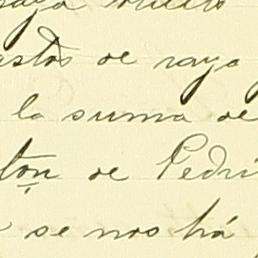 astos de raya
la suma de
ton de Pedri
se nos há